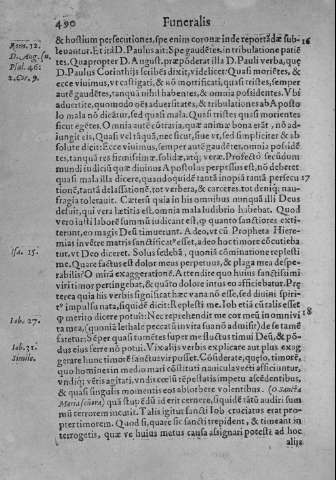 490 Funeralis
& hostium persecutiones, spe enim coronæ inde reportãdæ sub-
leuantur. Et itã D. Paulus ait: Spe gaudẽtes, in tribulatione patiẽ
tes. Quapropter D. August. præpõderat illa D. Pauli verba, quę
D. Paulus Corinthijs scribẽs dixit, videlicet: Quasi moriẽtes, &
ecce viuimus, vt castigati, & nõ mortificati, quasi tristes, semper
autẽ gaudẽtes, tanquã nihil habentes, & omnia possidentes. Vbi
aduertite, quomodo oẽs aduersitates, & tribulationes ab Aposto
lo mala nõ dicãtur, sed quasi mala. Quasi tristes quasi morientes
sicut egẽtes. Omnia autẽ cõtraria, quæ animæ bona erãt, nõ ad-
iungit eis, Quasi vel tãquã, nec sicut, siue vt, sed simpliciter & ab
solute dicit: Ecce viuimus, semper autẽ gaudẽtes, omnia possidẽ
tes, tanquã res firmissimæ, solidæ, atq; veræ. Profectò secũdum
mundi iudiciũ quæ diuinus Apostolus perpessus est, nõ deberet
quasi mala illa dicere, quandoquidẽ tantã inopiã tantã persecu
tionẽ, tantã delassationẽ, tot verbera, & carceres, tot deniq; nau-
fragia tolerauit. Cæterũ quia in his omnibus nunquã illi Deus
defuit, qui vera lætitia est, omnia mala ludibrio habebat. Quod
vero iusti ob labores eum nõ audirent est, quanto sanctiores exti-
terunt, eo magis Deũ timuerunt. Adeo, vt cũ Propheta Hiere-
mias in vẽtre matris sanctificatꝰ esset, adeo hac timore cõcutieba
tur, vt Deo diceret. Solus sedebã, quoniã cõminatione replesti
me. Quare factus est dolor meus perpetuus, & plaga mea despe-
rabilis? O mirã exaggerationẽ. Attendite quo huius sanctissimi
viri timor pertingebat, & quãto dolore intus eo afficiebatur. Præ
terea quia his verbis significat hæc vana nõ esse, sed diuini spiri-
tꝰ impulsu nata, siquidẽ dicit: Replesti me. Iob etiã cũ talis esset
ꝙ merito dicere potuit: Nec reprehendit me cor meũ in omni vi
ta mea, (quoniã lethale peccatũ in vita sua nõ admisit) de se tamẽ
fatetur: Sẽper quasi tumẽtes super me fluctus timui Deũ, & põ-
dus eius ferre nõ potui. Vix alijs verbis explicare aut plus exag
gerare hunc timorẽ sanctus vir posset. Cõsiderate, quęso, timorẽ,
quo homines in medio mari cõstituti nauicula vecti afficiuntur,
vndiq; vẽris agitati, vndis cœli repẽte satis impetu ascẽdentibus,
& quasi singulis momentis eos absorbere volentibus. (O Sancta
Maria señora) quã stupẽdũ id erit cernere, siquidẽ tãtũ audiri sum
mũ terrorem incutit. Talis igitur sancti Iob cruciatus erat pro-
pter timorem. Quod si, quare sic sancti trepident, & timeant in
terrogetis, quæ vè huius metus causa assignari potest? ad hoc
alijs
Rom. 12.
D. Aug. su.
Psal. 46:
2. Cor. 9.
Isa. 15.
Iob. 27.
Iob. 31.
Simile.
16
17
18